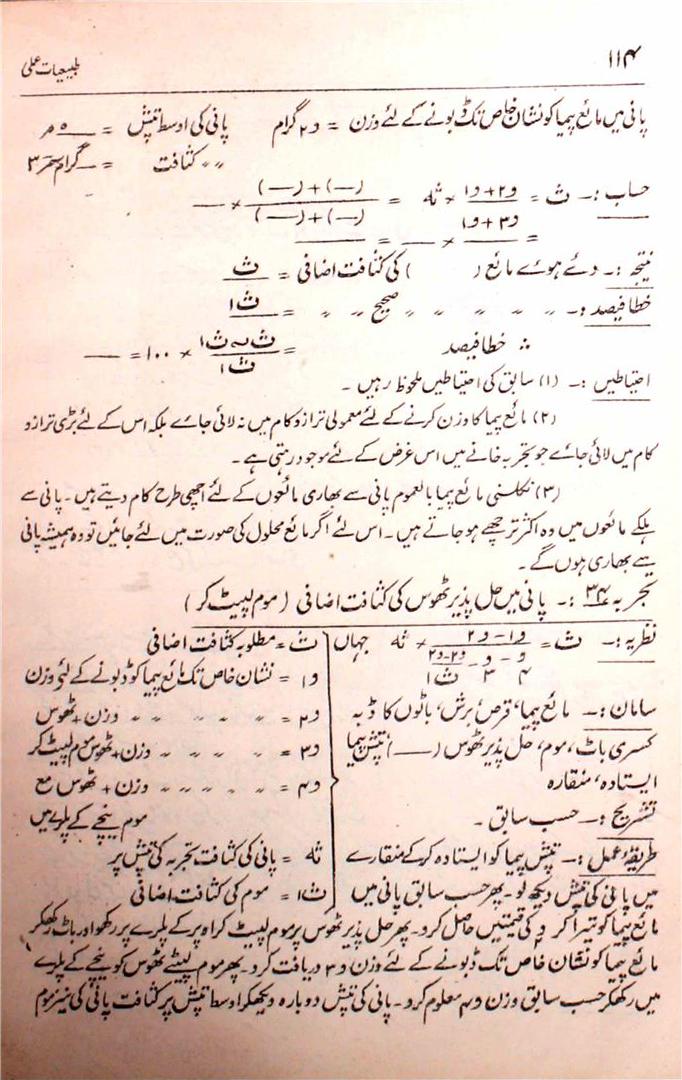 ۱۱۴
طبیعیات عملی
پانی میں مائع پیما کو نشان خاص تک ڈبونے کے لئے وزن = و۲ گرام پانی کی اوسط تپش = — ْ م
〃 〃 کثافت = — گرام سمر۳
حساب :- ث = (و۲ + و۱) / (و۳ + و۱) × ثہ = ((—) + (—)) / ((—) + (—)) × —
= — × — = —
نتیجہ :- دئے ہوے مائع ( ) کی کثافت اضافی = ث
خطا فیصد :- 〃 〃 〃 〃 〃 صحیح 〃 〃 = ث۱
∴ خطا فیصد = (ث ~ ث۱) / ث۱ × ۱۰۰ = —
احتیاطیں :- (۱) سابق کی احتیاطیں ملحوظ رہیں ۔
(۲) مائع پیما کا وزن کرنے کے لئے معمولی ترازو کام میں نہ لائی جاے بلکہ اس کے لئے بڑی ترازو
کام میں لائی جاے جو تجربہ خانے میں اس غرض کے لئے موجود رہتی ہے ۔
(۳) نکلسنی مائع پیما بالعموم پانی سے بھاری مائعوں کے لئے اچھی طرح کام دیتے ہیں ۔ پانی سے
ہلکے مائعوں میں وہ اکثر ترچھے ہو جاتے ہیں ۔ اس لئے اگر مائع محلول کی صورت میں لئے جائیں تو وہ ہمیشہ پانی
سے بھاری ہوں گے ۔
تجربہ ۳۴ :- پانی میں حل پذیر ٹھوس کی کثافت اضافی (موم لپیٹ کر)
نظریہ :- ث = (و۱ - و۲) / (و۴ - و۳ - (و۲ - و۳) / ث۱) × ثہ جہاں
سامان :- مائع پیما، قرص برش، باٹوں کا ڈبہ
کسری باٹ، موم، حل پذیر ٹھوس (—) تپش پیما
ایستادہ، منقارہ
تشریح :- حسب سابق ۔
طریقہ عمل :- تپش پیما کو ایستادہ کر کے منقارے
میں پانی کی تپش دیکھ لو ۔ پھر حسب سابق پانی میں
ث = مطلوبہ کثافت اضافی
و۱ = نشان خاص تک مائع پیما کو ڈبونے کے لئے وزن
و۲ = 〃 〃 〃 〃 〃 وزن + ٹھوس
و۳ = 〃 〃 〃 〃 وزن + ٹھوس موم لپیٹ کر
و۴ = 〃 〃 〃 〃 وزن + ٹھوس مع
موم نیچے کے پلڑے میں
ثہ = پانی کی کثافت تجربہ کی تپش پر
ث۱ = موم کی کثافت اضافی
مائع پیما کو تیرا کر و کی قیمتیں حاصل کرو ۔ پھر حل پذیر ٹھوس پر موم لپیٹ کر اوپر کے پلڑے پر رکھو اور باٹ رکھکر
مائع پیما کو نشان خاص تک ڈبونے کے لئے وزن و۳ دریافت کرو ۔ پھر موم لپٹے ٹھوس کو نیچے کے پلڑے
میں رکھکر حسب سابق وزن و۴ معلوم کرو ۔ پانی کی تپش دوبارہ دیکھکر اوسط تپش پر کثافت پانی کی نیز موم